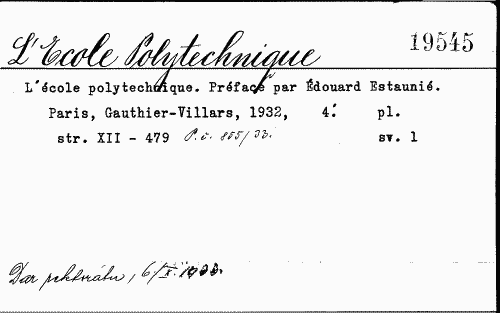 L'Ecole Polytechnique 19545
L'école polytechnique. Préface par Édouard Estaunié.
Paris, Gauthier-Villars, 1932, 4° pl.
str. XII - 479 P.č. 855/33. sv. 1
Dar rektorátu, 6/X. 1933.